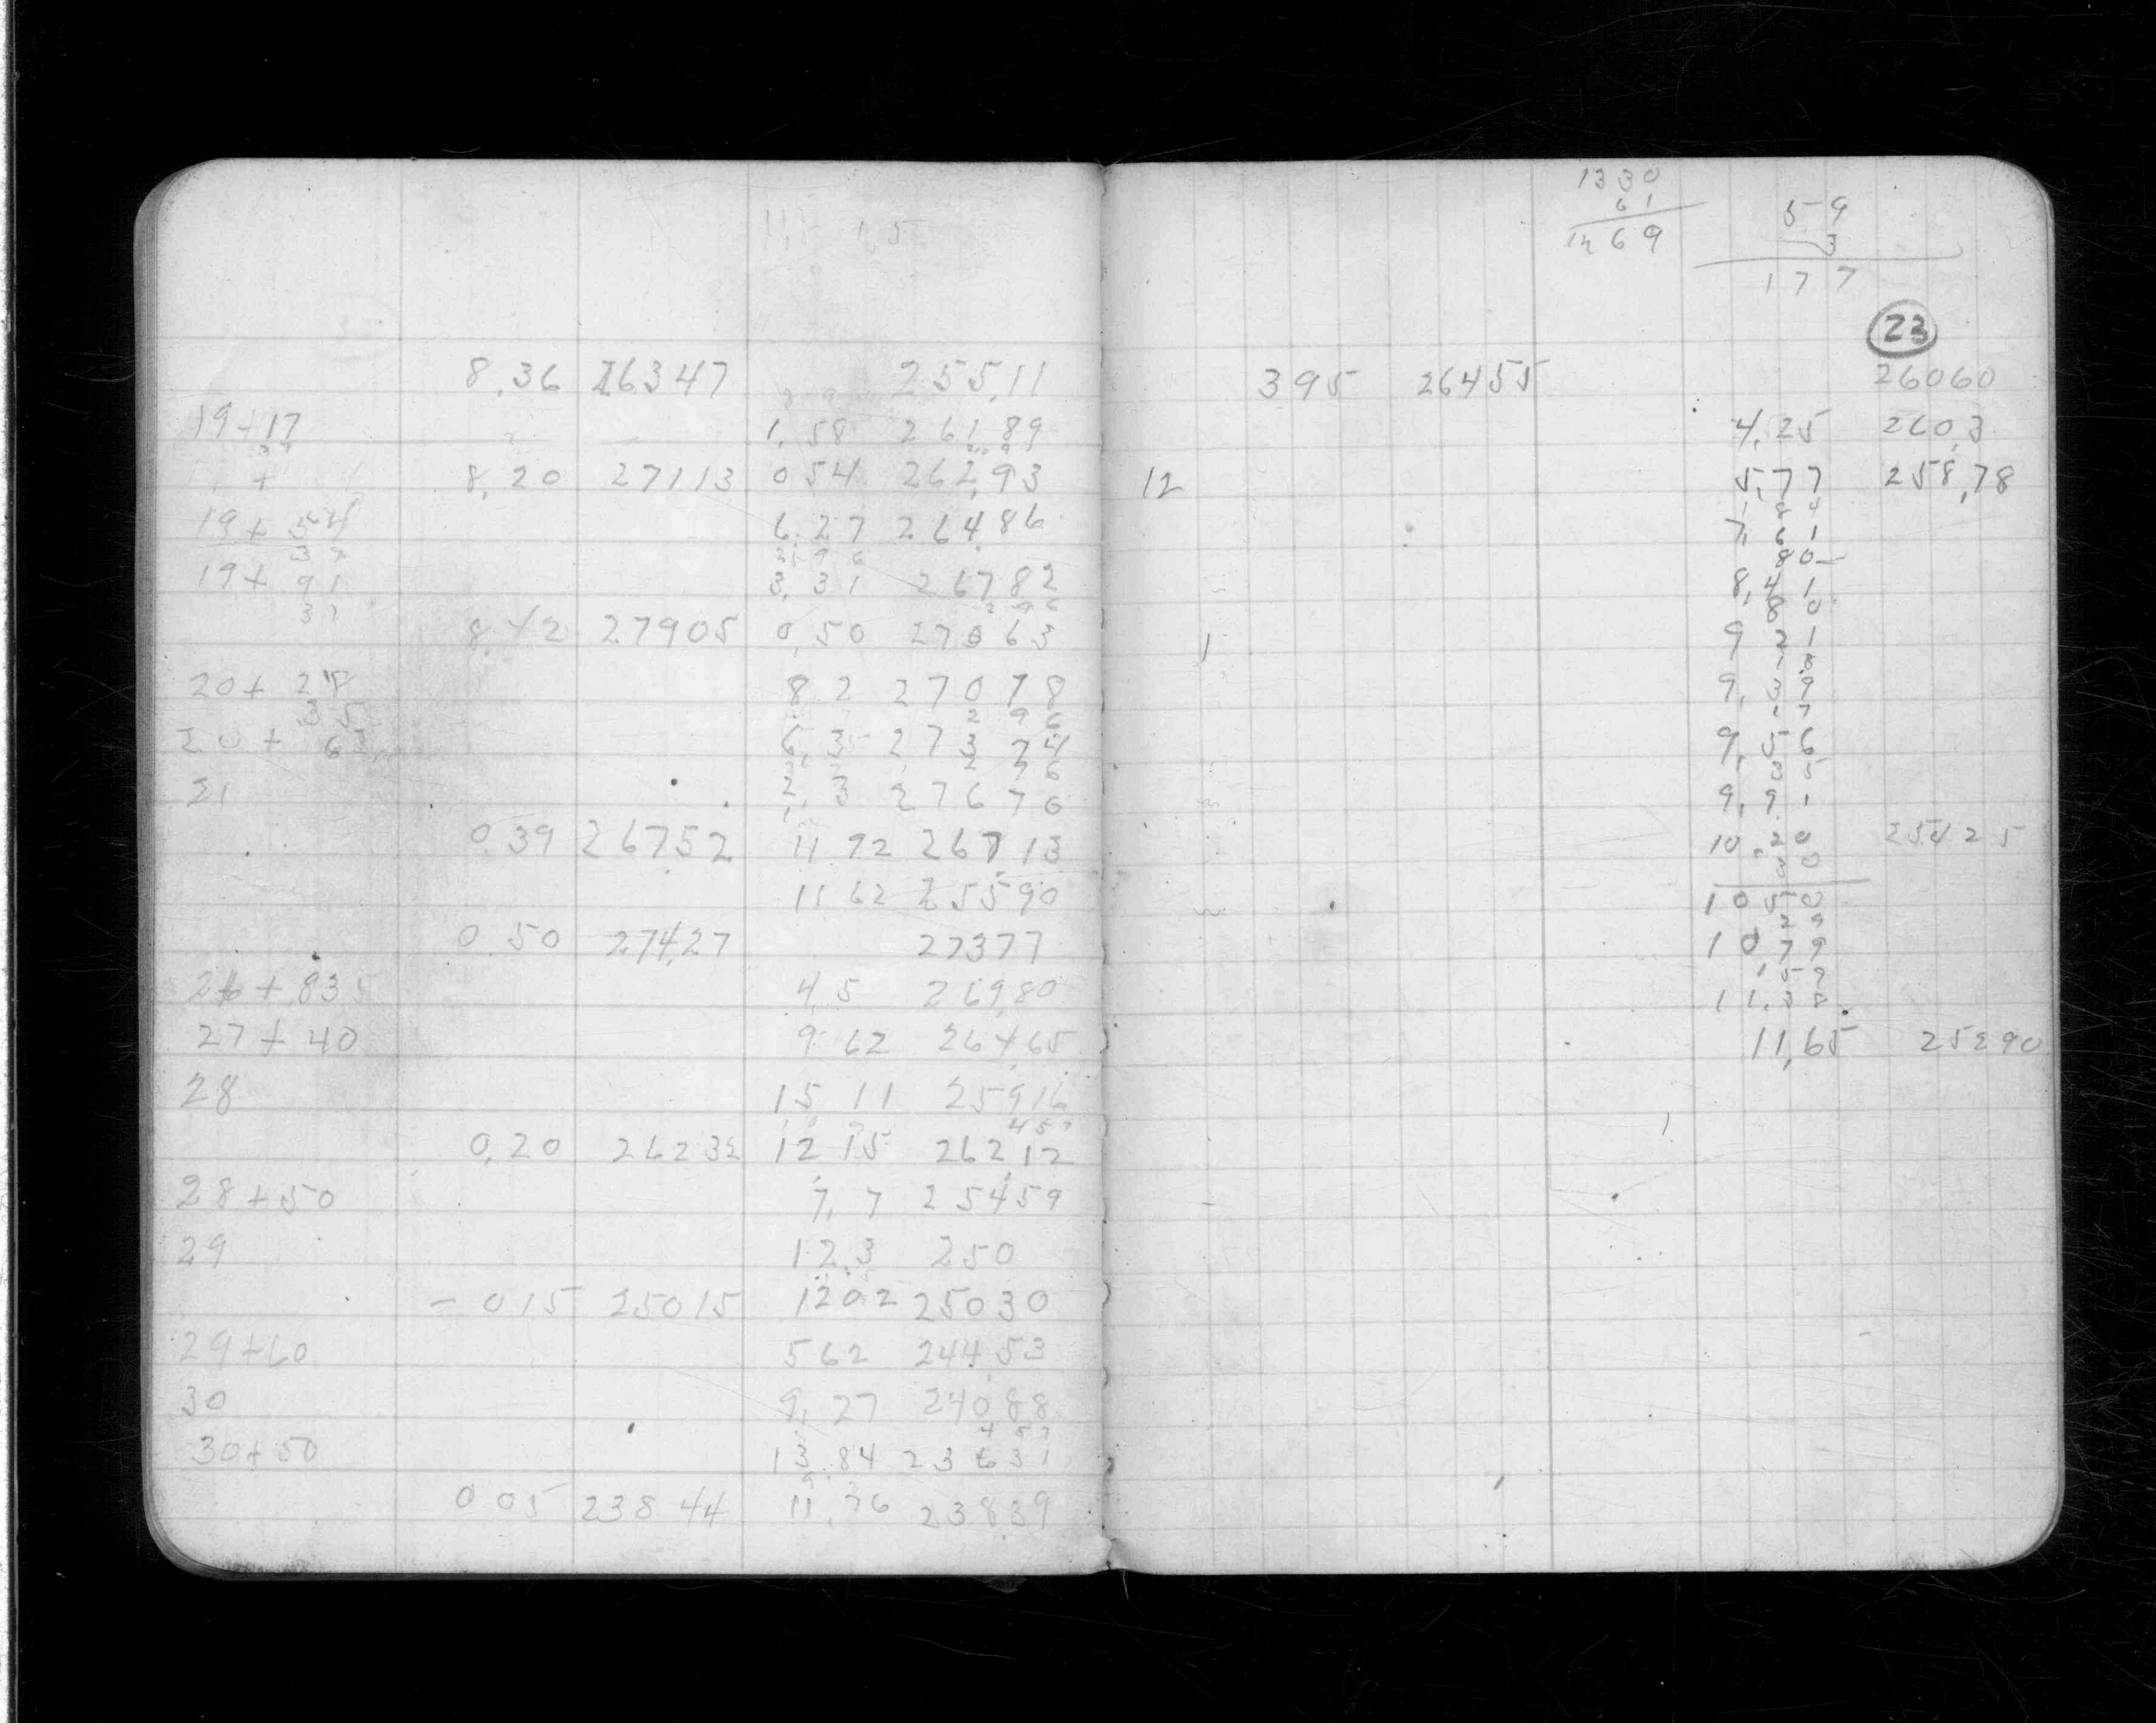 8.36 26347 255.11
19+17 1,58 261.89
8,20 27113 0 54 262,93
19+54 6.27 264.86
34
2 9 6
19+ 91 3.31 267 82
37 2 9 6
8.42 27905 0,50 270 63
20+ 28 8 2 270 78
35 2 9 6
20+ 63 6.3 273 74
21 2.3 276 70
0.39 26752 11 92 267 13
11 62 255 90
0.50 274,27 27377
26+.835 4,5 269,80
27+40 9 62 264 65
28 15 11 259 16
4 5 7
0,20 26232 12 15 262,12
28+50 7,7 25459
29 12.3 250
- 0 15 25015 1202 25030
29+60 562 244.53
30 9,27 240 88
4 5 7
30+50 13.84 23 631
0 05 238 44 11.76 238.39
1330
61
1469
59
3
177
23
395 26455 26060
4,25 260,3
12 5,77 258,78
1 8 4
7, 6 1
80
8,4 1
8 0
9 2 1
1 8
9, 3 9
1 7
9, 5 6
3 5
9, 9 1
10,20 254 25
3 0
10 5 0
2 9
10,79
59
11.38
11,65 25290